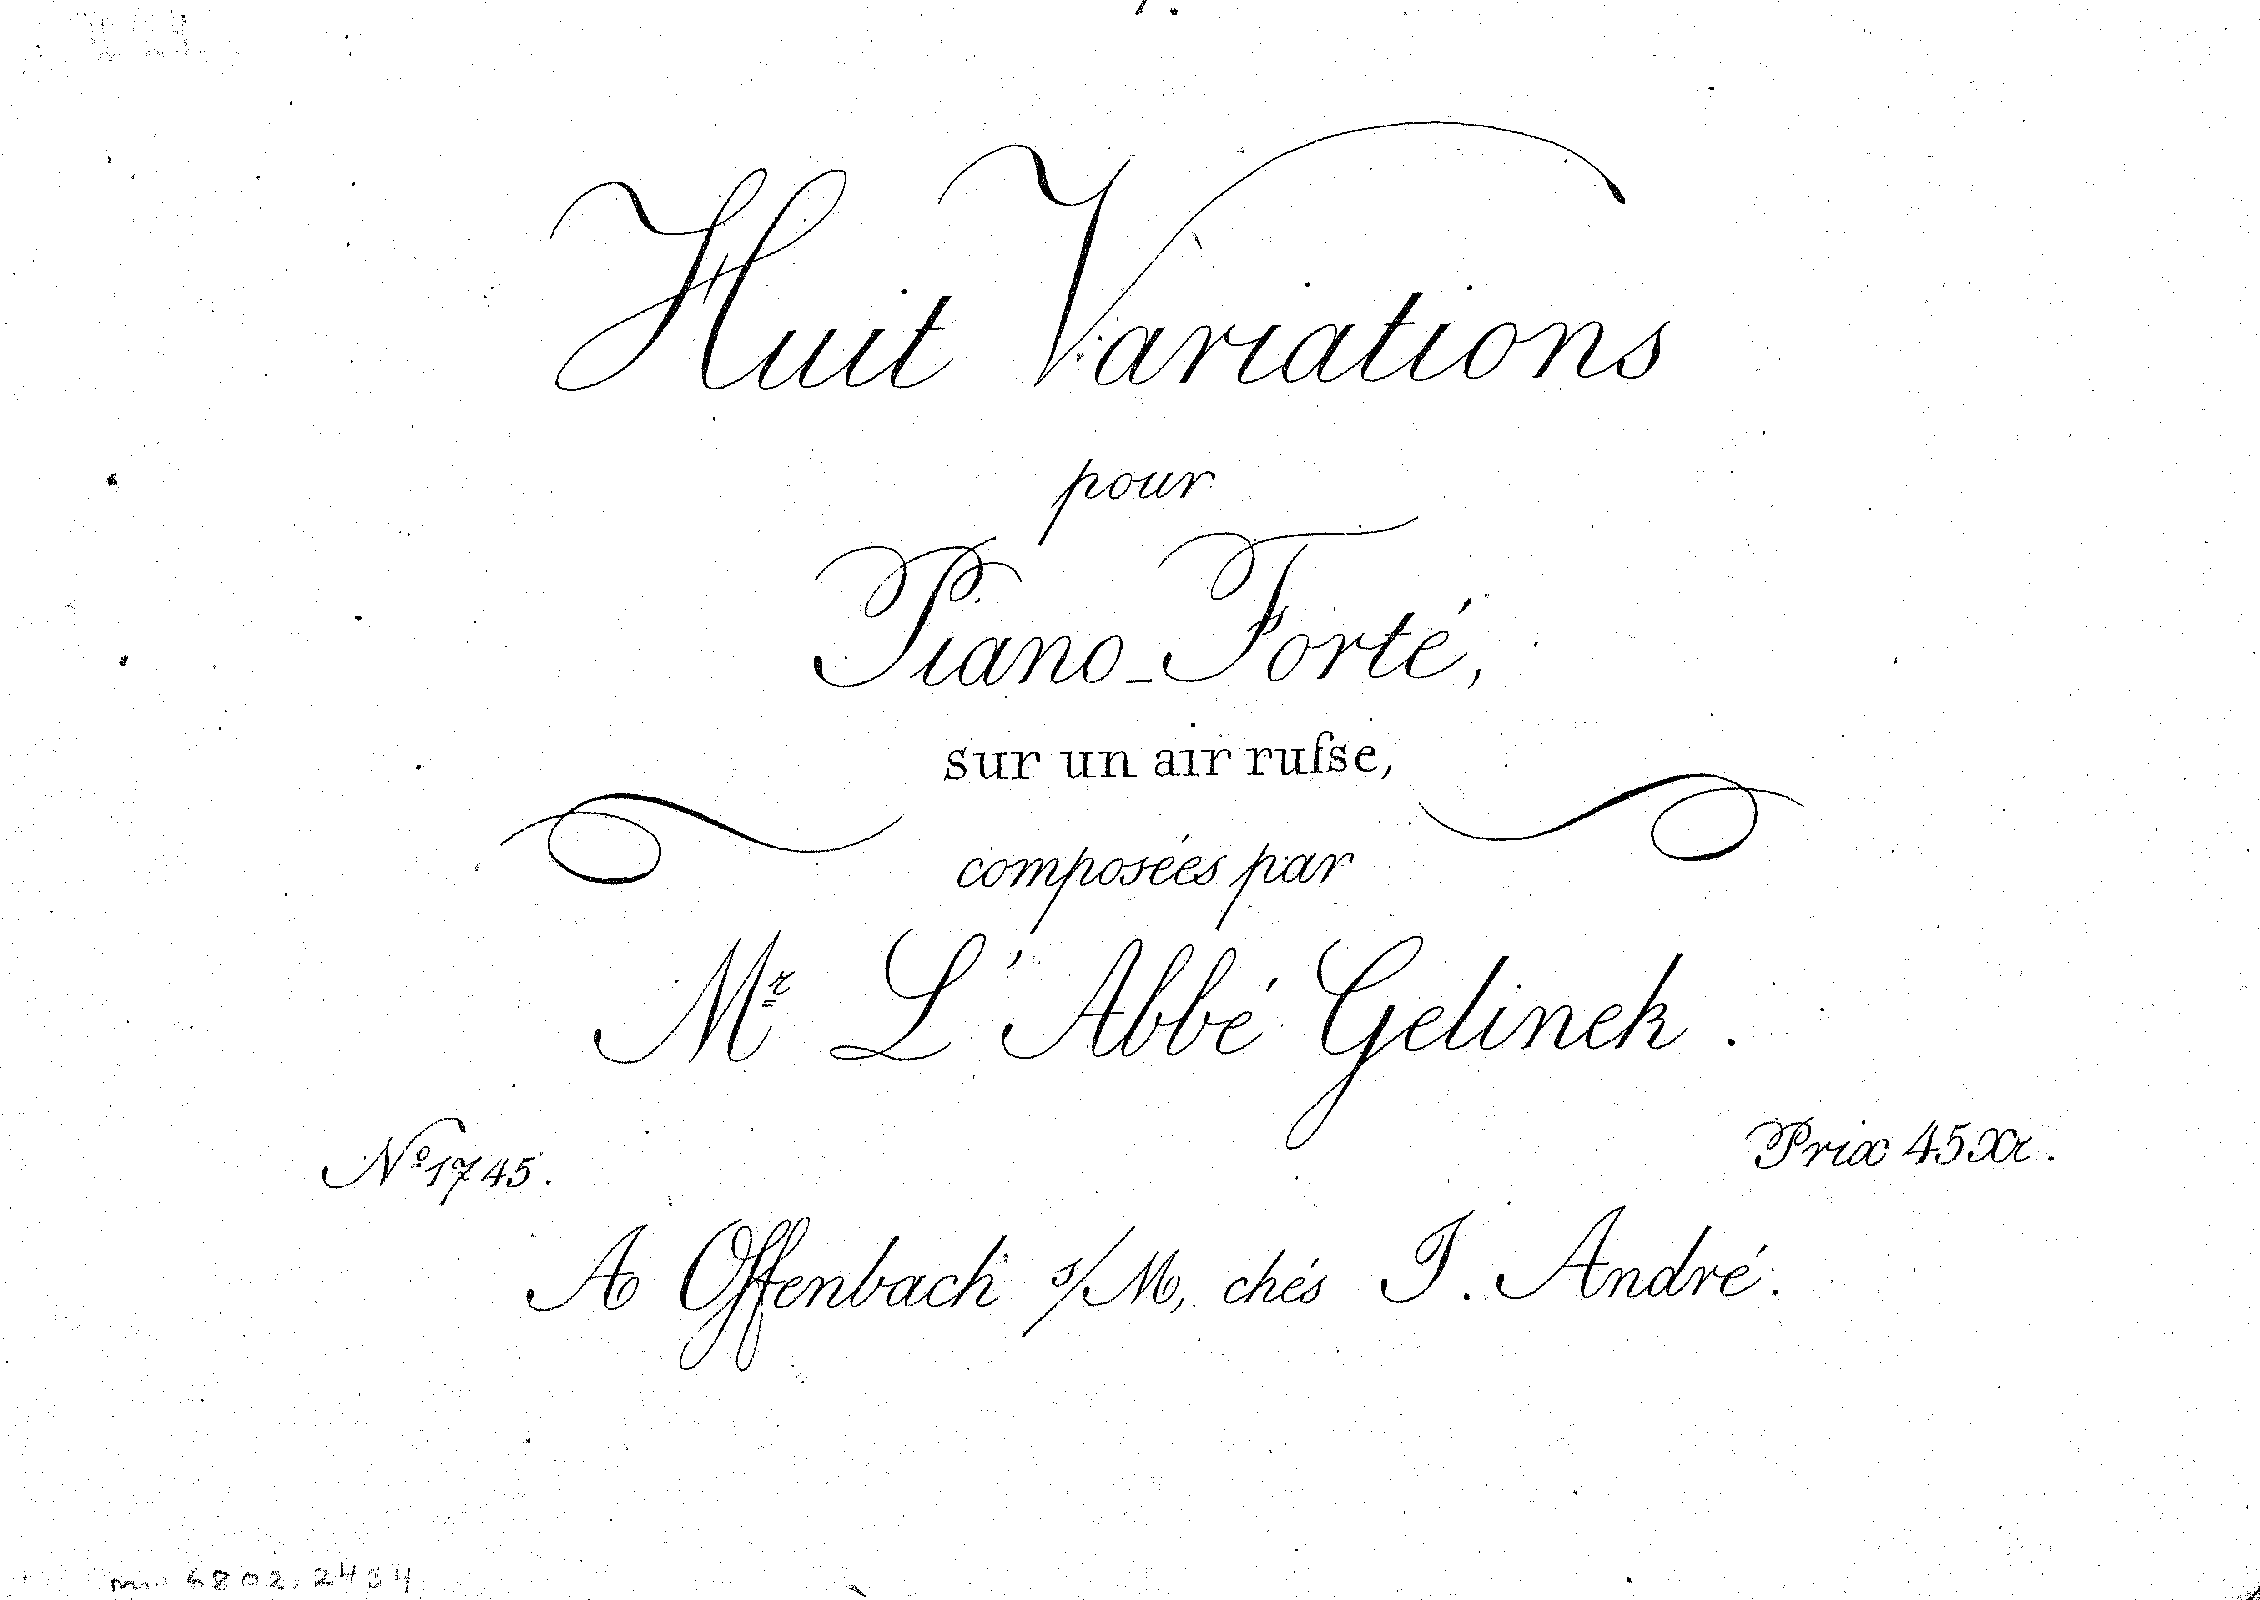 Huit Variations
pour
Piano-Forté,
sur un air ruſse,
composées par
Mr L'Abbé Gelinek.
No 1745.
Prix 45 Xr.
A Offenbach s/M, chés J. André.